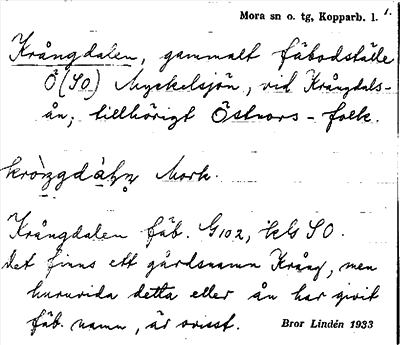 Mora sn o. tg, Kopparb. l. 1.
Krångdalen, gammalt fäbodställe
Ö (SO) Myckelsjön, vid Krångdals-
ån; tillhörigt Östnors-folk.
Mork.
Krångdalen fäb. G102, SO.
det finns ett gårdsnamn Krång, men
huruvida detta eller ån har givit
fäb. namn, är ovisst. Bror Lindén 1933